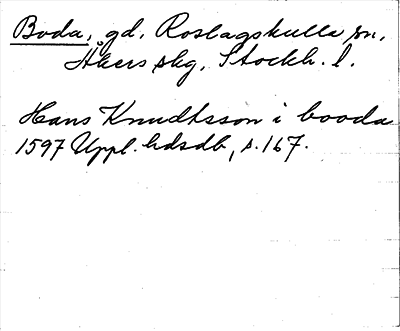 Boda, gd, Roslagskulla sn,
Åkers skg, Stockh. l.
Hans Knudtsson i booda
1597 Uppl. hdsdb, s. 167.